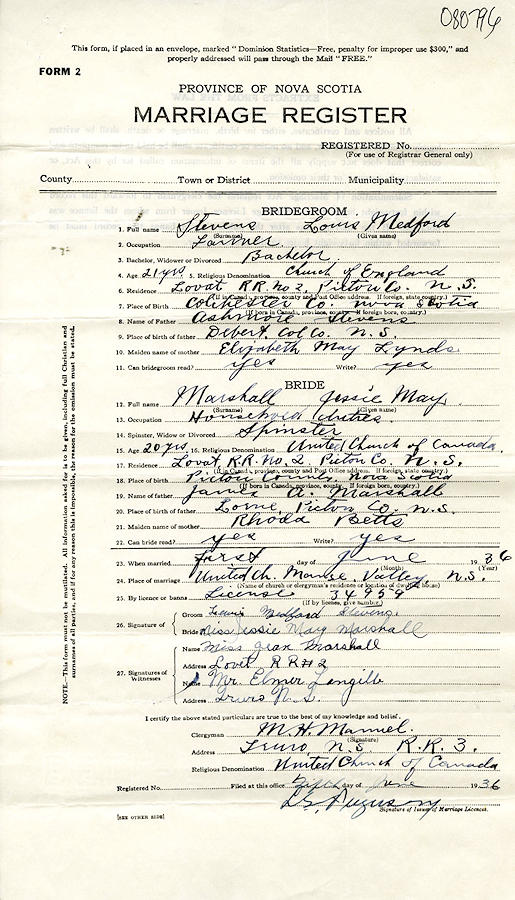 080796
This form, if placed in an envelope, marked "Dominion Statistics—Free, penalty for improper use $300," and
properly addressed will pass through the Mail "FREE."
FORM 2
PROVINCE OF NOVA SCOTIA
MARRIAGE REGISTER
REGISTERED No.
(For use of Registrar General only)
County Town or District Municipality
BRIDEGROOM
1. Full name Stevens Louis Medford
(Surname) (Given name)
2. Occupation Farmer
3. Bachelor, Widower or Divorced Bachelor
4. Age 21 yrs 5. Religious Denomination Church of England
6. Residence Lovat RR No 2, Pictou Co. N.S.
(If in Canada, province, county and Post Office address. If foreign, state country.)
7. Place of Birth Colchester Co. Nova Scotia
(If born in Canada, province, county. If foreign born, country.)
8. Name of Father Ashmore Stevens
9. Place of birth of father Debert, Col Co. N.S.
10. Maiden name of mother Elizabeth May Lynds
11. Can bridegroom read? yes Write? yes
BRIDE
12. Full name Marshall Jessie May
(Surname) (Given name)
13. Occupation Household duties
14. Spinster, Widow or Divorced Spinster
15. Age 20 yrs. 16. Religious Denomination United Church of Canada
17. Residence Lovat, R.R. No. 2, Pictou Co. N.S.
(If in Canada, province, county and Post Office address. If foreign, state country.)
18. Place of Birth Pictou County, Nova Scotia
(If born in Canada, province, county. If foreign born, country.)
19. Name of father James A. Marshall
20. Place of birth of father Lorne, Pictou Co. N.S.
21. Maiden name of mother Rhoda Betts
22. Can bride read? yes Write? yes
23. When married first day of June 1936
(Month) (Year)
24. Place of marriage United Ch. Manse, Valley, N.S.
(Name of church or clergyman's residence or location of dwelling house)
25. By licence or banns License 34959
(If by license, give number)
26. Signature of
Groom Medford Stevens
Bride Miss Jessie May Marshall
27. Signatures of Witnesses
Name Miss Jean Marshall
Address Lovat RR#2
Name Mr. Elmer Langille
Address Truro N.S.
I certify the above stated particulars are true to the best of my knowledge and belief.
Clergyman M. H. Manuel
(Signature)
Address Truro, N.S. R.R. 3.
Religious Denomination United Church of Canada
Registered No. Filed at this office Fifth day of June 1936
Signature of Issuer of Marriage Licences.
[SEE OTHER SIDE]
NOTE.—This form must not be mutilated. All information asked for is to be given, including full Christian and
surnames of all parties, and if for any reason this is impossible, the reason for the omission must be stated.